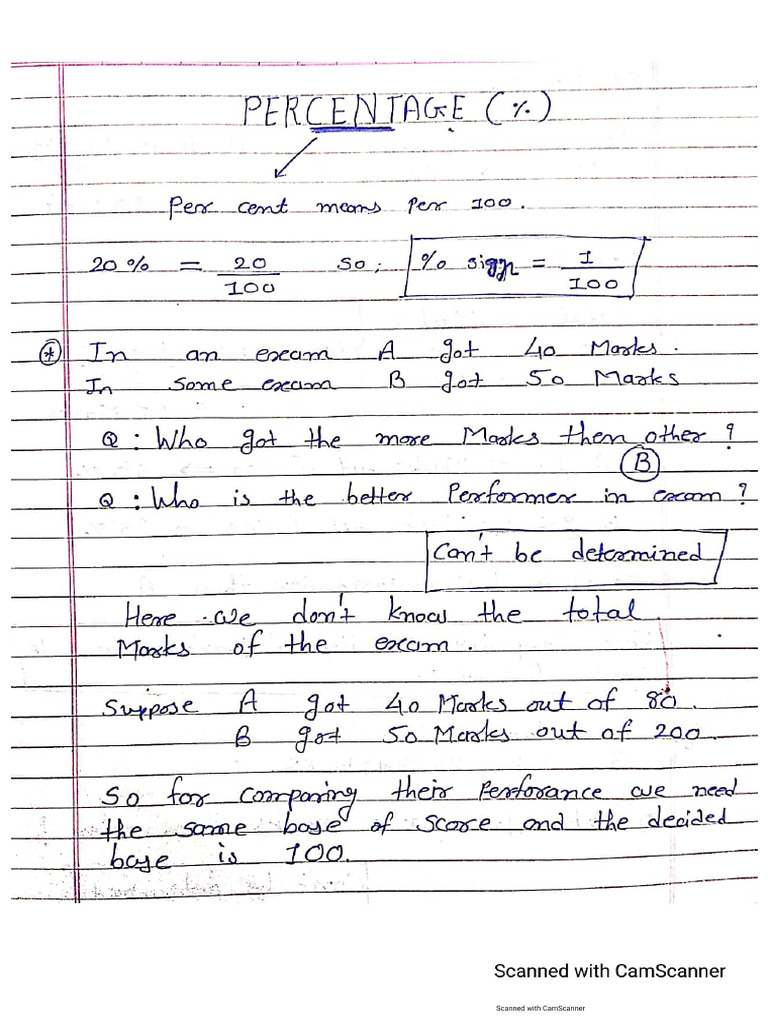 PERCENTAGE (%)
Per cent means Per 100.
20% = 20/100 so; % sign = 1/100
* In an exam A got 40 Marks.
In some exam B got 50 Marks
Q : Who got the more Marks then other ?
B
Q : Who is the better Performer in exam ?
Can't be determined
Here we don't know the total
Marks of the exam.
Suppose A got 40 Marks out of 80.
B got 50 Marks out of 200.
So for comparing their Perforance we need
the same base of score and the decided
base is 100.
Scanned with CamScanner
Scanned with CamScanner